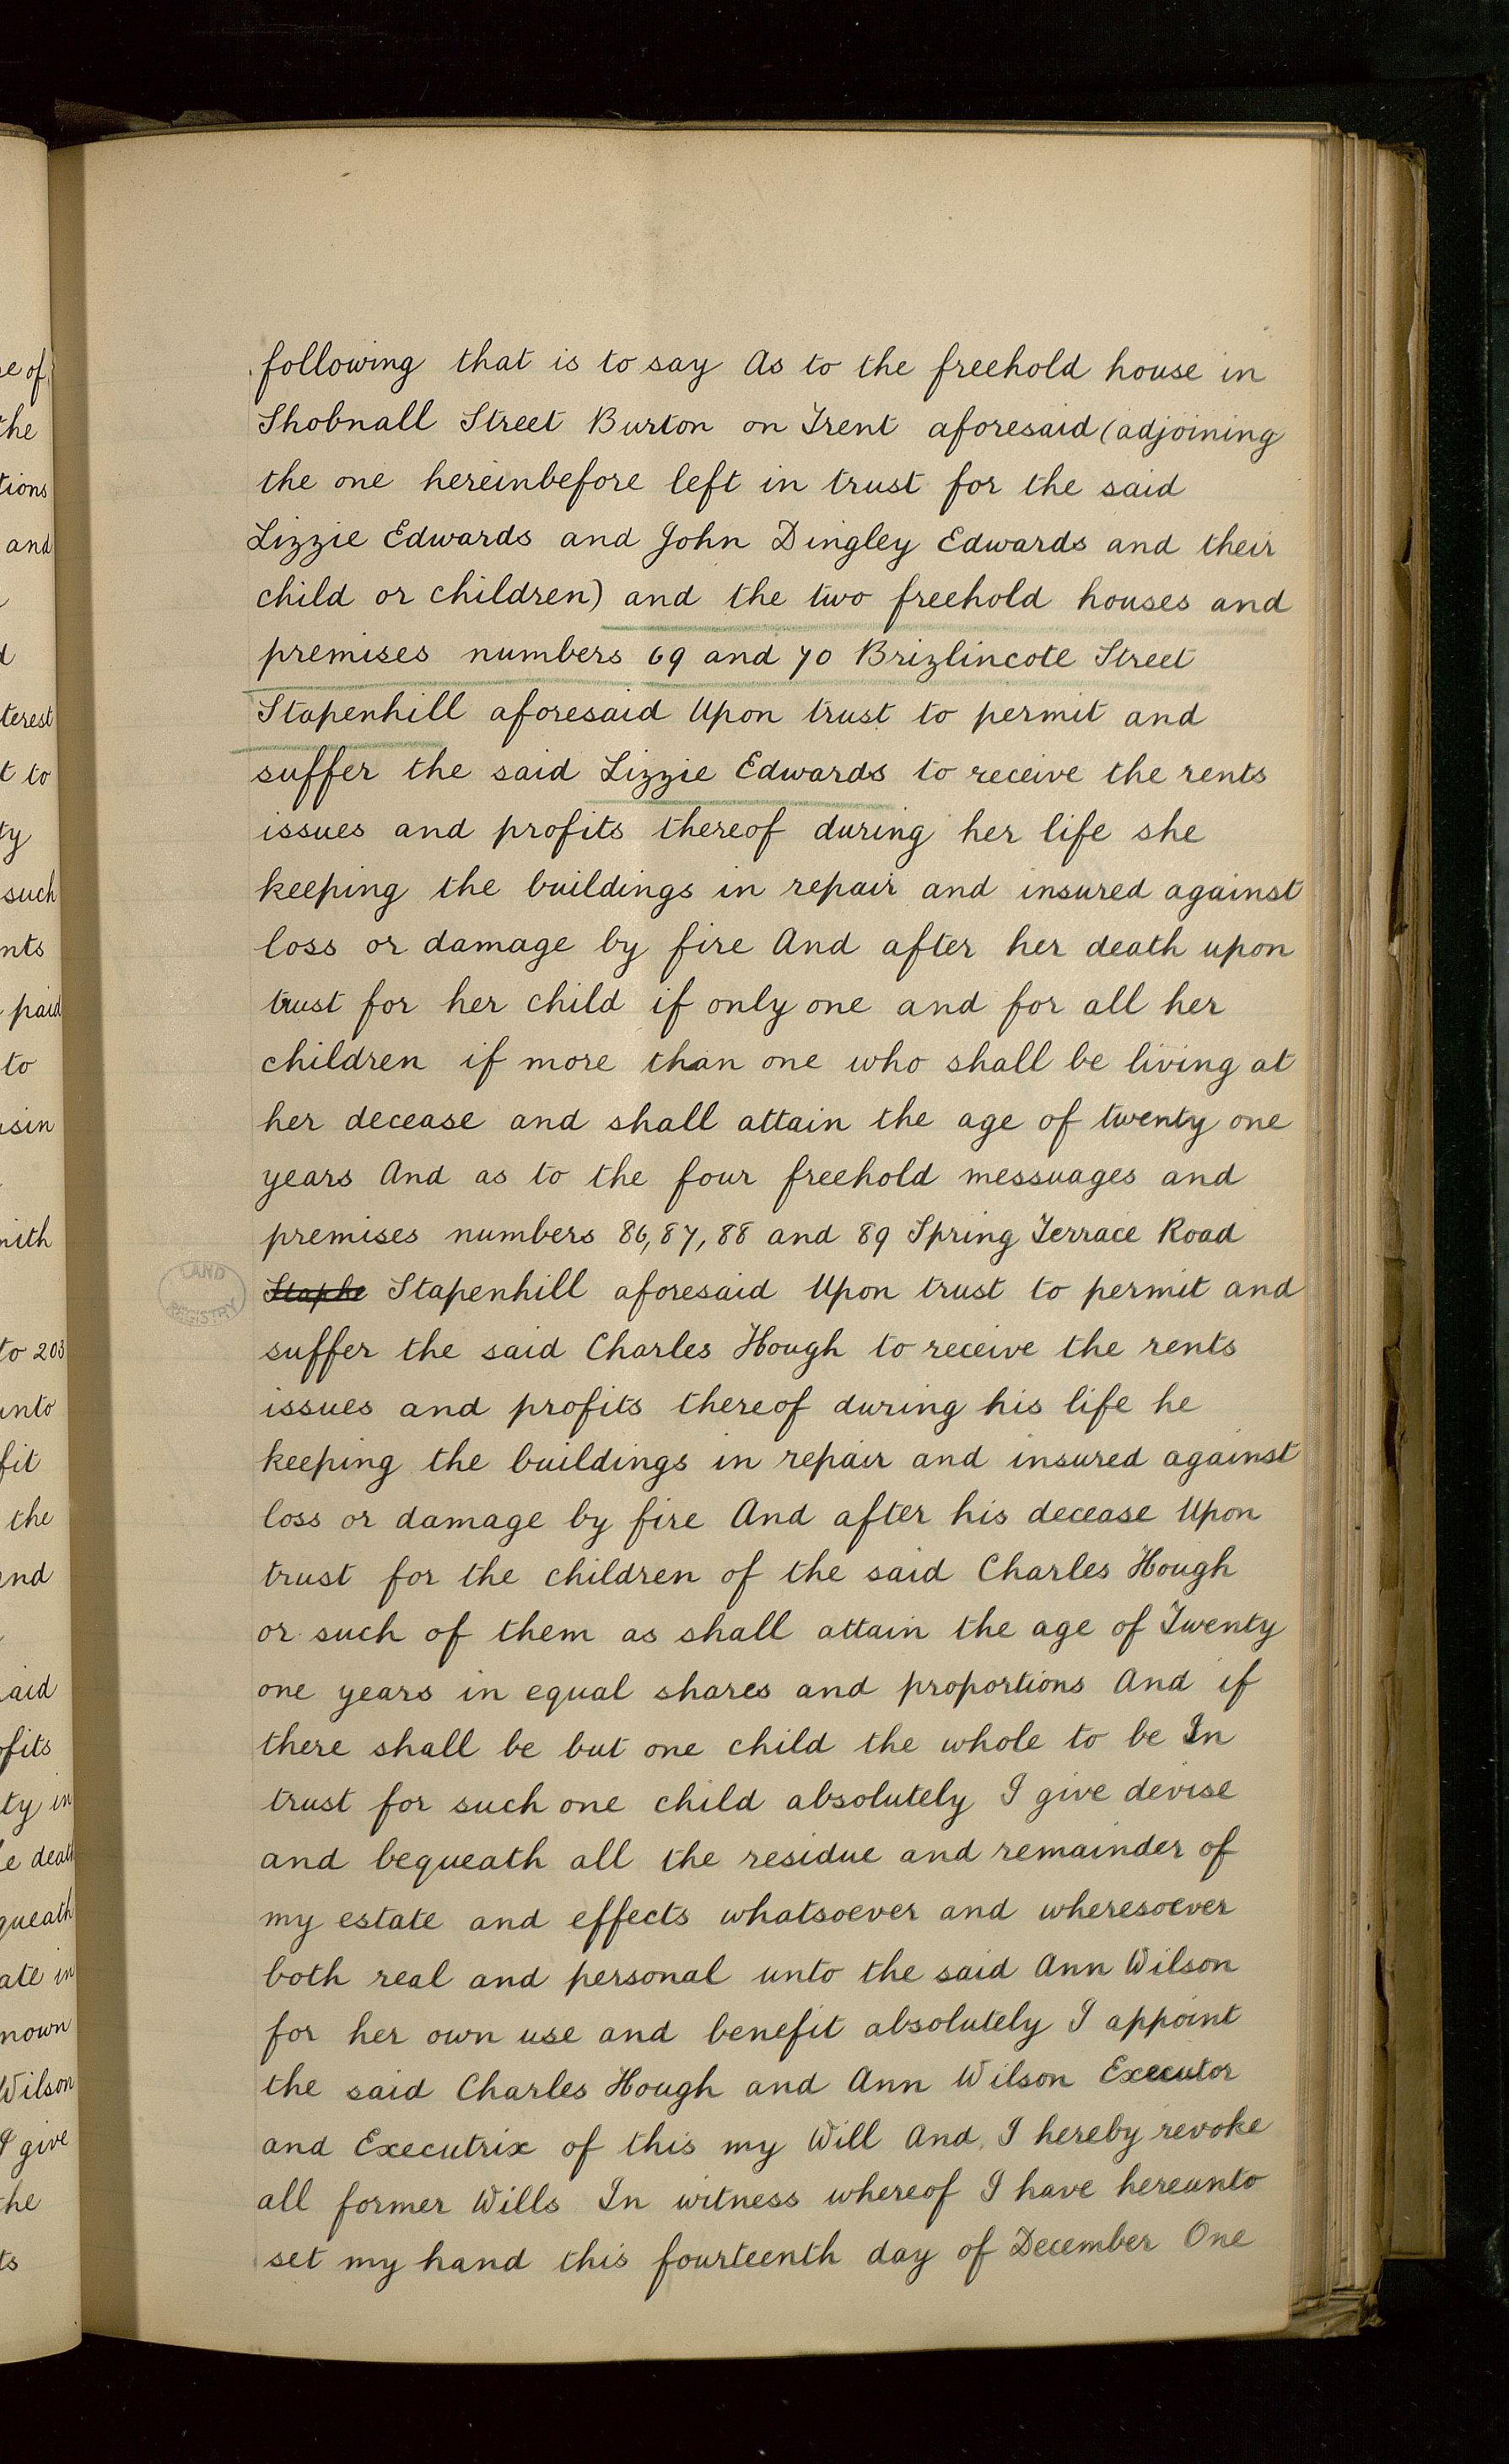 following that is to say As to the freehold house in
Shobnall Street Burton on Trent aforesaid (adjoining
the one hereinbefore left in trust for the said
Lizzie Edwards and John Dingley Edwards and their
child or children) and the two freehold houses and
premises numbers 69 and 70 Brizlincote Street
Stapenhill aforesaid Upon trust to permit and
suffer the said Lizzie Edwards to receive the rents
issues and profits thereof during her life she
keeping the buildings in repair and insured against
loss or damage by fire And after her death upon
trust for her child if only one and for all her
children if more than one who shall be living at
her decease and shall attain the age of twenty one
years And as to the four freehold messuages and
premises numbers 86, 87, 88 and 89 Spring Terrace Road
LAND REGISTRY
Staphe Stapenhill aforesaid Upon trust to permit and
suffer the said Charles Hough to receive the rents
issues and profits thereof during his life he
keeping the buildings in repair and insured against
loss or damage by fire And after his decease Upon
trust for the children of the said Charles Hough
or such of them as shall attain the age of Twenty
one years in equal shares and proportions And if
there shall be but one child the whole to be In
trust for such one child absolutely I give devise
and bequeath all the residue and remainder of
my estate and effects whatsoever and wheresoever
both real and personal unto the said Ann Wilson
for her own use and benefit absolutely I appoint
the said Charles Hough and Ann Wilson Executor
and Executrix of this my Will And I hereby revoke
all former Wills In witness whereof I have hereunto
set my hand this fourteenth day of December One